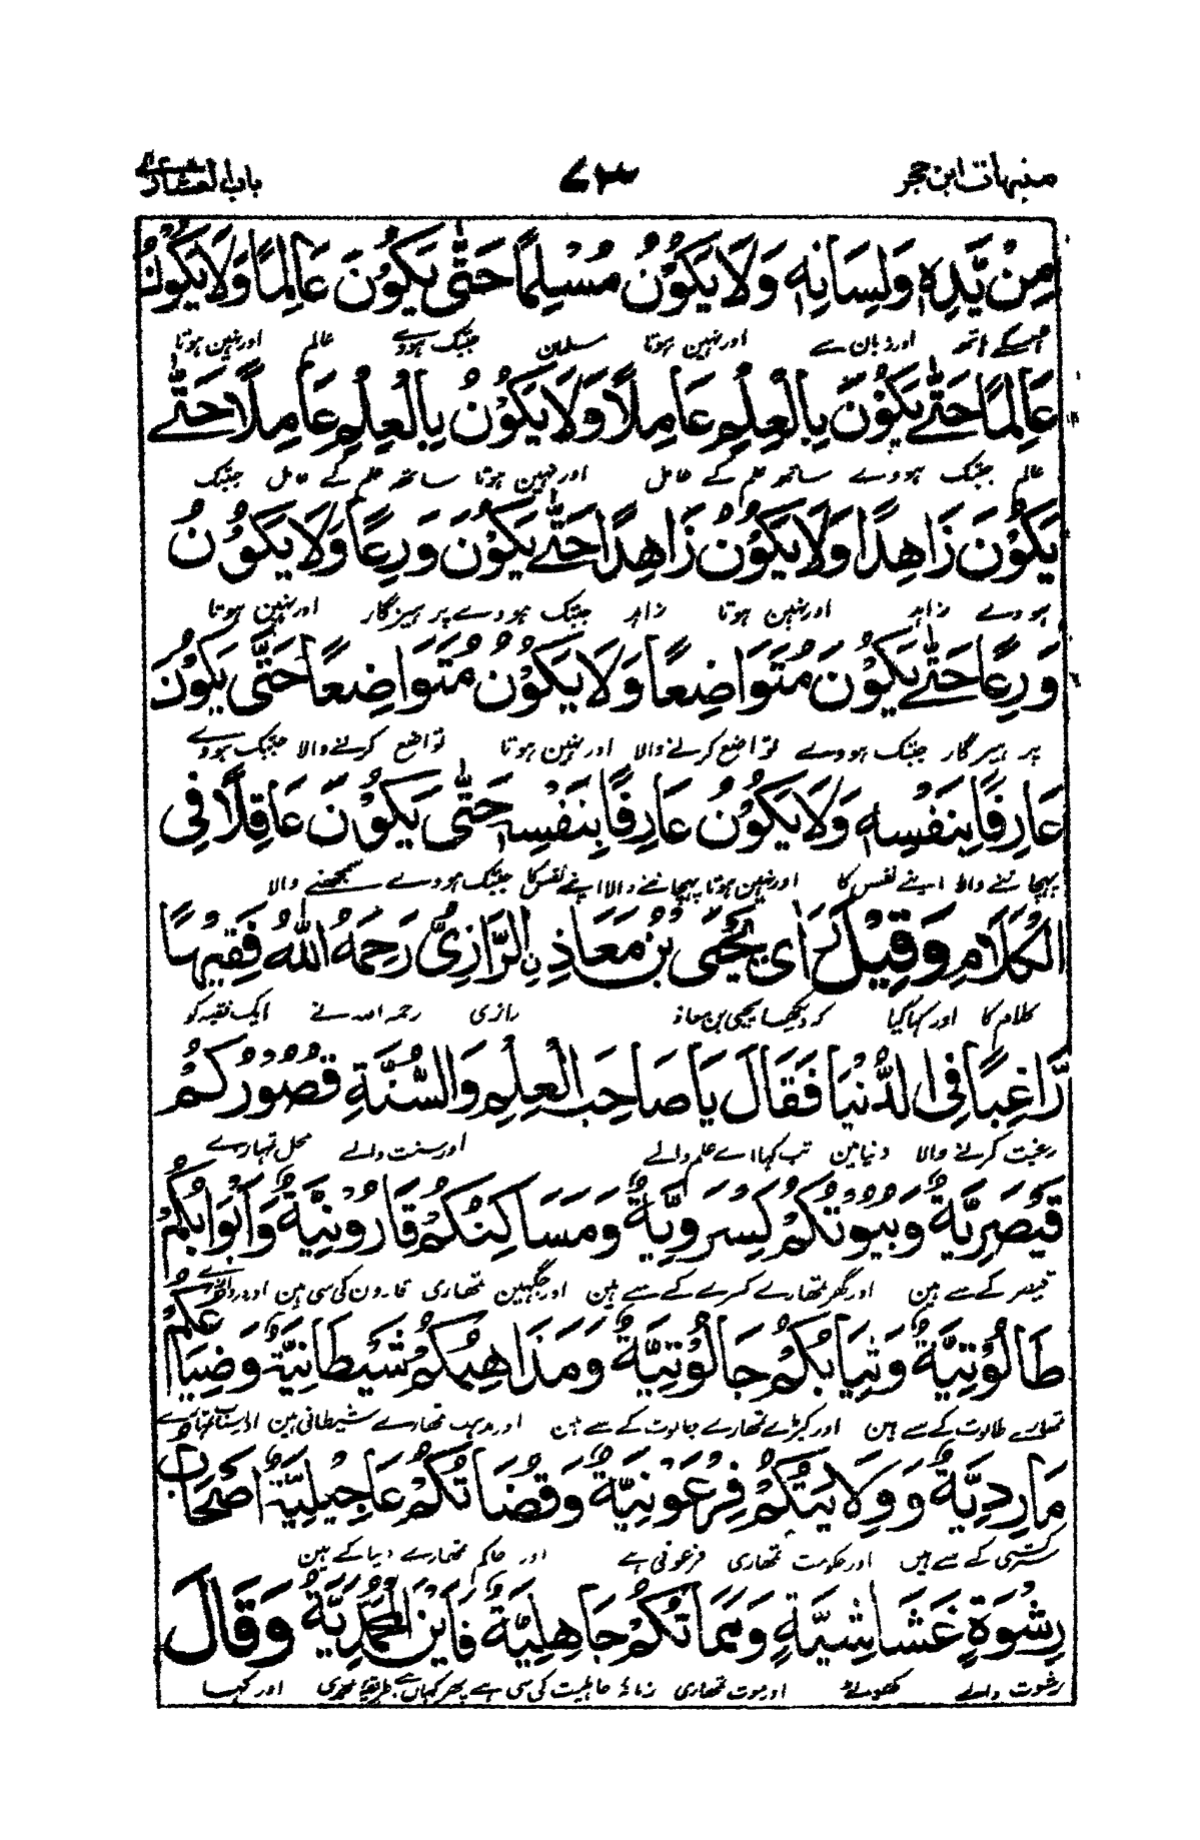 منبہات ابن حجر ۷۳ باب العشاری
مِنْ يَّدِهٖ وَلِسَانِهٖ وَلَا يَكُوْنُ مُسْلِمًا حَتّٰى يَكُوْنَ عَالِمًا وَلَا يَكُوْنُ
اور زبان سے اور نہین ہوتا مسلمان جبتک ہووے عالم اور نہین ہوتا
عَالِمًا حَتّٰى يَكُوْنَ بِالْعِلْمِ عَامِلًا وَلَا يَكُوْنُ بِالْعِلْمِ عَامِلًا حَتّٰے
عالم جبتک ہووے ساتھ علم کے عامل اور نہین ہوتا ساتھ علم کے عامل جبتک
يَكُوْنَ زَاهِدًا وَلَا يَكُوْنُ زَاهِدًا حَتّٰے يَكُوْنَ وَرِعًا وَلَا يَكُوْنُ
ہووے زاہد اور نہین ہوتا زاہد جبتک ہووے پرہیزگار اور نہین ہوتا
وَرِعًا حَتّٰے يَكُوْنَ مُتَوَاضِعًا وَلَا يَكُوْنُ مُتَوَاضِعًا حَتّٰى يَكُوْنَ
پرہیزگار جبتک ہووے تواضع کرنے والا اور نہین ہوتا تواضع کرنے والا جبتک ہووے
عَارِفًا بِنَفْسِهٖ وَلَا يَكُوْنُ عَارِفًا بِنَفْسِهٖ حَتّٰى يَكُوْنَ عَاقِلًا فِى
پہچاننے والا اپنے نفس کا اور نہین ہوتا پہچاننے والا اپنے نفس کا جبتک ہووے سمجھنے والا
الْكَلَامِ وَقِيْلَ رَاٰى يَحْيَى بْنُ مَعَاذِ نِ الرَّازِىُّ رَحِمَهُ اللّٰهُ فَقِيْهًا
کلام کا اور کہا گیا کہ دیکھا یحیی بن معاذ رازی رحمہ اللہ نے ایک فقیہ کو
رَّاغِبًا فِى الدُّنْيَا فَقَالَ يَا صَاحِبَ الْعِلْمِ وَالسُّنَّةِ قُصُوْرُكُمْ
رغبت کرنے والا دنیا مین تب کہا اے علم والے اور سنت والے محل تمہارے
قَيْصَرِيَّةٌ وَبُيُوْتُكُمْ كِسْرَوِيَّةٌ وَمَسَاكِنُكُمْ قَارُوْنِيَّةٌ وَاَبْوَابُكُمْ
قیصر کے سے ہین اور گھر تمھارے کسرے کے سے ہین اور جگہین تمھاری قارون کی سی ہین
طَالُوْتِيَّةٌ وَثِيَابُكُمْ جَالُوْتِيَّةٌ وَمَذَاهِبُكُمْ شَيْطَانِيَّةٌ وَضِيَاعُكُمْ
طالوت کے سے ہین اور کپڑے تمھارے جالوت کے سے ہین اور مذہب تمھارے شیطانی ہین
مَارِدِيَّةٌ وَوِلَايَتُكُمْ فِرْعَوْنِيَّةٌ وَقُضَاتُكُمْ عَاجِيْلِيَّةٌ اَصْحَابُ
سرکشی کے سے ہین اور حکومت تمھاری فرعونی ہے اور حاکم تمھارے دنیا کے ہین
رِشْوَةٍ غَشَاشِيَّةٍ وَمَمَاتُكُمْ جَاهِلِيَّةٌ فَاَيْنَ الْمُحَمَّدِيَّةُ وَقَالَ
رشوت والے اور موت تمھاری زمانۂ جاہلیت کی سی ہے پھر کہاں ہے طریقۂ محمدی اور کہا